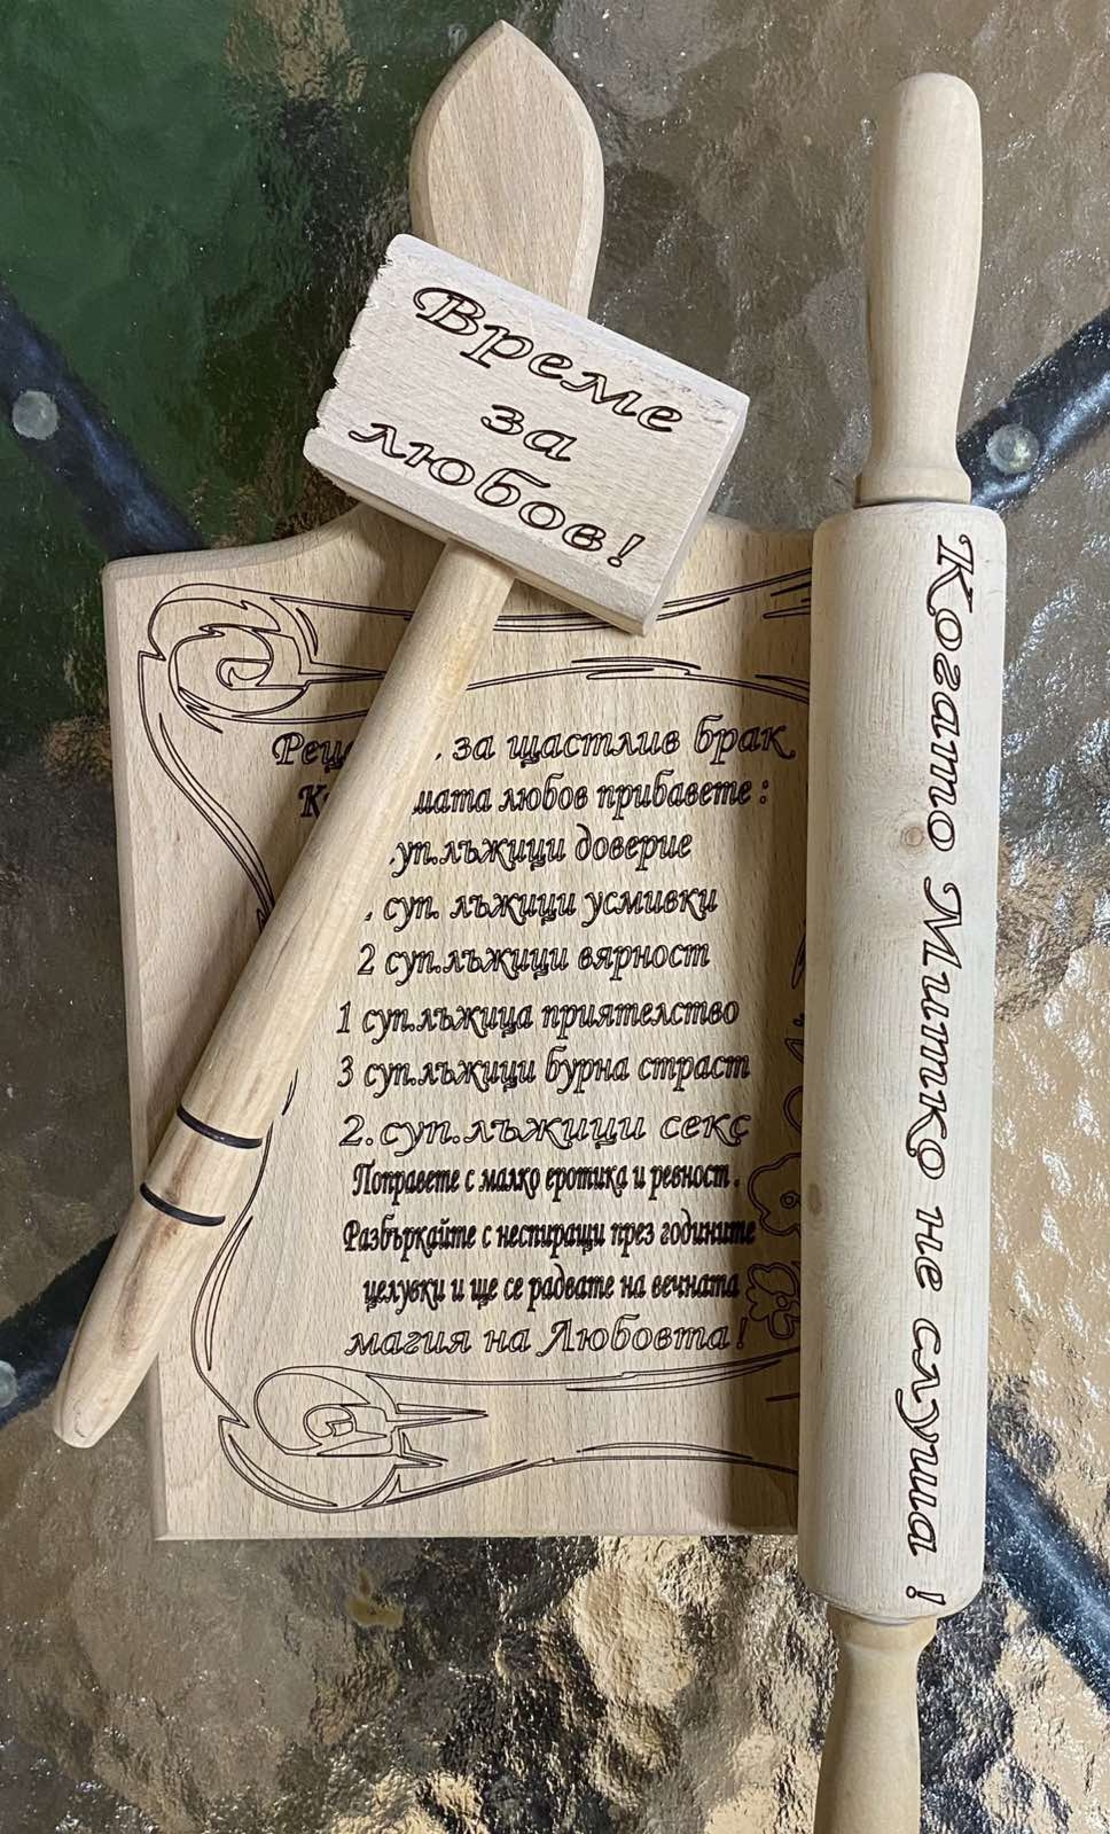 Време
за
любов!
за щастлив брак
любов прибавете :
суп.лъжици доверие
суп. лъжици усмивки
2 суп.лъжици вярност
1 суп.лъжица приятелство
3 суп.лъжици бурна страст
2.суп.лъжици секс
Поправете с малко еротика и ревност.
Разбъркайте с неспиращи през годините
целувки и ще се радвате на вечната
магия на Любовта!
Когато Митко не слуша !